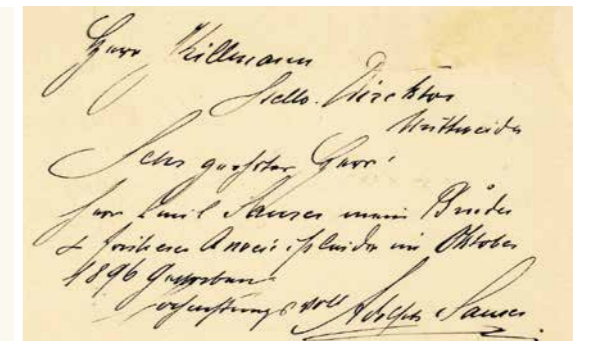 Herrn Killmann
Stello. Direktor
Mittweida
Sehr geehrter Herr!
Herr Emil Sauser mein Bruder
& früherer ist leider im Oktober
1896 gestorben
Hochachtungsvoll Adolph Sauser